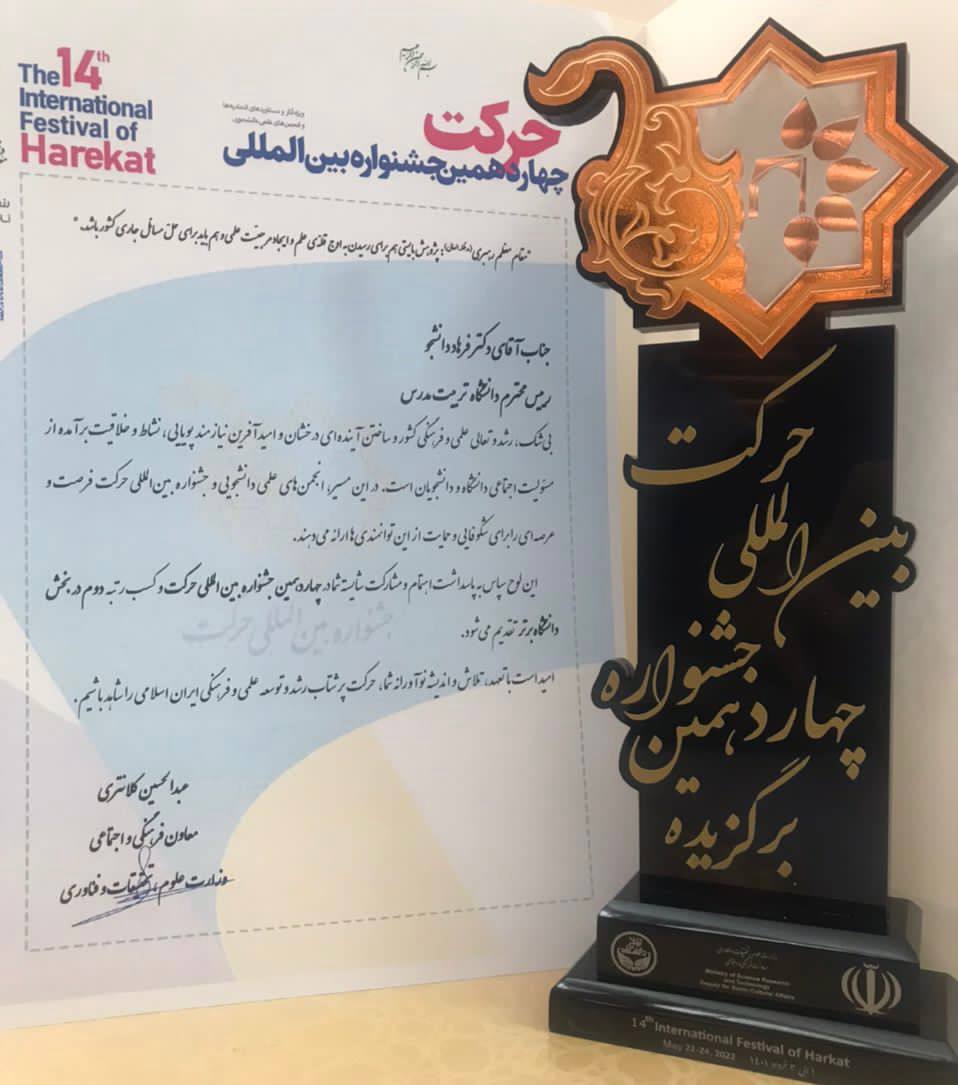 بسم الله الرحمن الرحیم
The 14th
International
Festival of
Harekat
ویژه آثار و دستاوردهای اتحادیه‌ها
و انجمن‌های علمی دانشجویی
حرکت
چهاردهمین جشنواره بین‌المللی
"مقام معظم رهبری (مدظله‌العالی): پژوهش بایستی هم برای رسیدن به اوج قله‌ی علم و ایجاد مرجعیت علمی و هم باید برای حل مسائل جاری کشور باشد."
جناب آقای دکتر فرهاد دانشجو
رییس محترم دانشگاه تربیت مدرس
بی‌شک، رشد و تعالی علمی و فرهنگی کشور و ساختن آینده‌ای درخشان و امیدآفرین نیازمند پویایی، نشاط و خلاقیت برآمده از
مسئولیت اجتماعی دانشگاه و دانشجویان است. در این مسیر، انجمن‌های علمی دانشجویی و جشنواره بین‌المللی حرکت فرصت و
عرصه‌ای را برای شکوفایی و حمایت از این توانمندی‌ها ارائه می‌دهند.
این لوح سپاس به پاسداشت اهتمام و مشارکت شایسته شما در چهاردهمین جشنواره بین‌المللی حرکت و کسب رتبه دوم در بخش
دانشگاه برتر تقدیم می‌شود.
جشنواره بین‌المللی حرکت
امید است با تعهد، تلاش و اندیشه نوآورانه شما، حرکت پرشتاب رشد و توسعه علمی و فرهنگی ایران اسلامی را شاهد باشیم.
عبدالحسین کلانتری
معاون فرهنگی و اجتماعی
وزارت علوم، تحقیقات و فناوری
حرکت
بین المللی
جشنواره
چهاردهمین
برگزیده
Ministry of Science Research
and Technology
Deputy for Socio-Cultural Affairs
14th International Festival of Harkat
May 22-24, 2022
۱ الی ۳ خرداد ۱۴۰۱